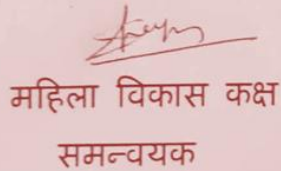 महिला विकास कक्ष
समन्वयक